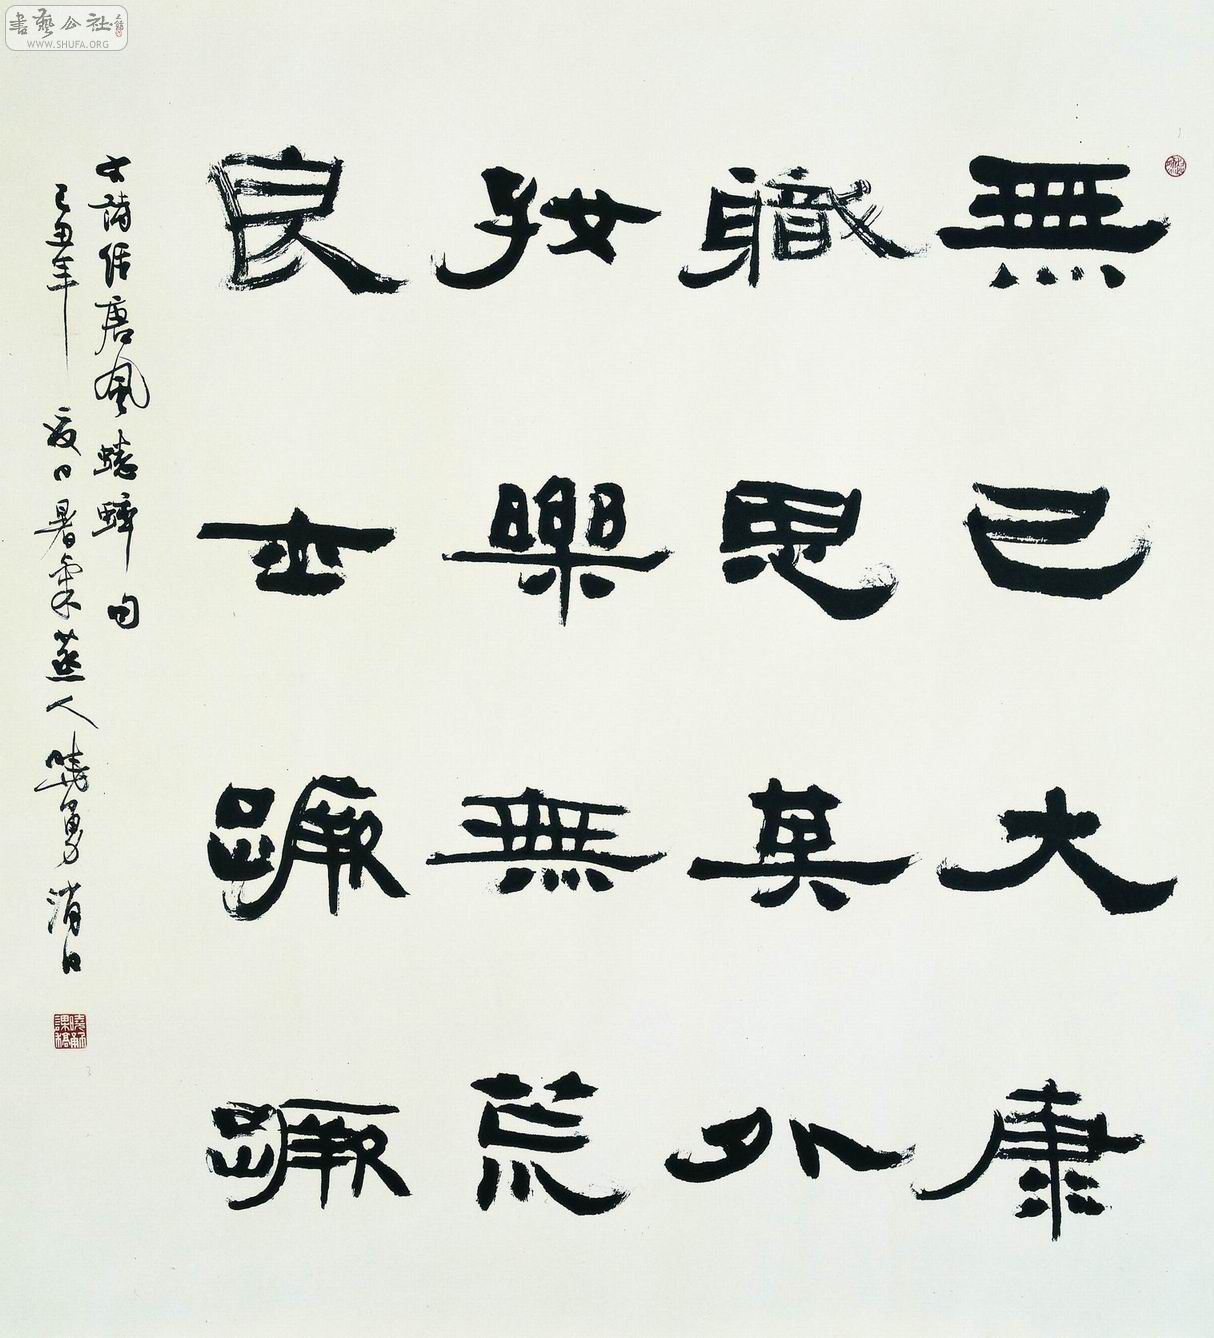 書藝公社
WWW.SHUFA.ORG
無已大康
職思其外
好樂無荒
良士蹶蹶
詩經唐風蟋蟀句
己丑年夏日暑氣蒸人曉勇消日